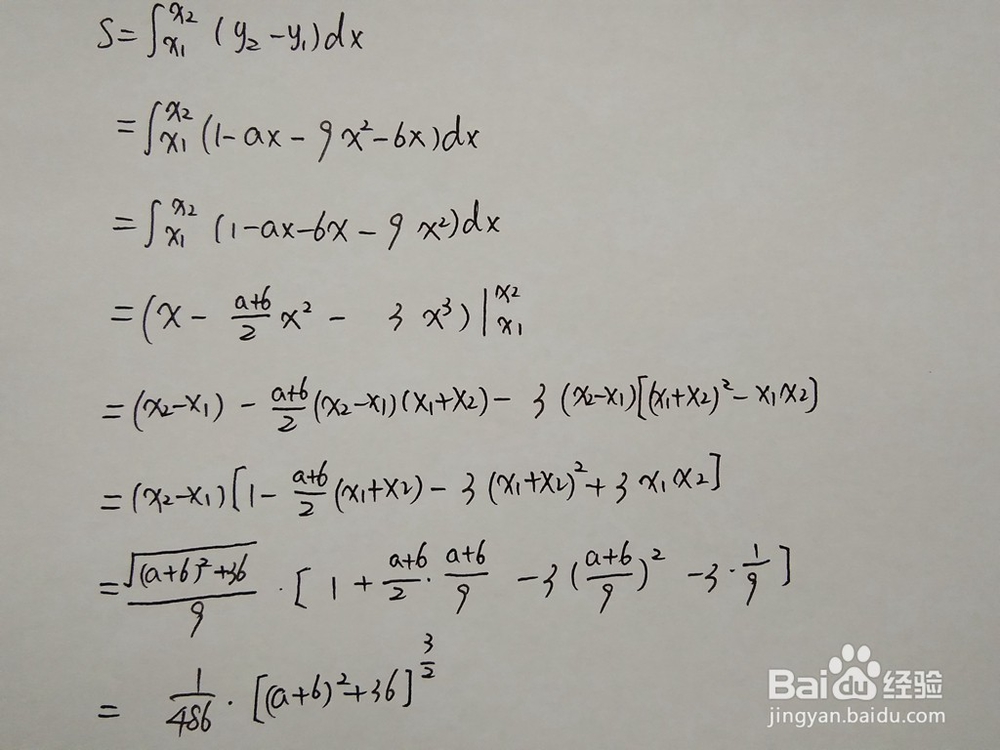 S=∫_{x1}^{x2} (y2-y1)dx
=∫_{x1}^{x2} (1-ax-9x²-6x)dx
=∫_{x1}^{x2} (1-ax-6x-9x²)dx
=(x - \frac{a+6}{2}x² - 3x³)|_{x1}^{x2}
=(x2-x1) - \frac{a+6}{2}(x2-x1)(x1+x2) - 3(x2-x1)[(x1+x2)²-x1x2]
=(x2-x1)[1-\frac{a+6}{2}(x1+x2)-3(x1+x2)²+3x1x2]
=\frac{\sqrt{(a+6)²+36}}{9}·[1+\frac{a+6}{2}·\frac{a+6}{9}-3(\frac{a+6}{9})²-3·\frac{1}{9}]
=\frac{1}{486}·[(a+6)²+36]^{\frac{3}{2}}
Baidu经验
jingyan.baidu.com